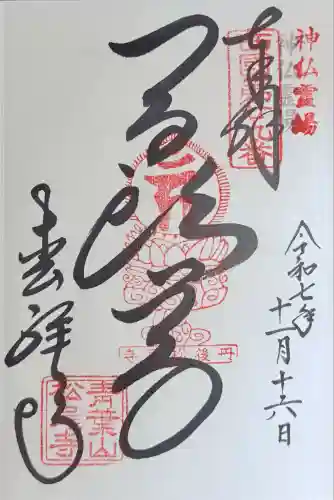 神仏霊場
奉拝
令和七年
十一月十六日
馬頭尊
青葉山
松尾寺